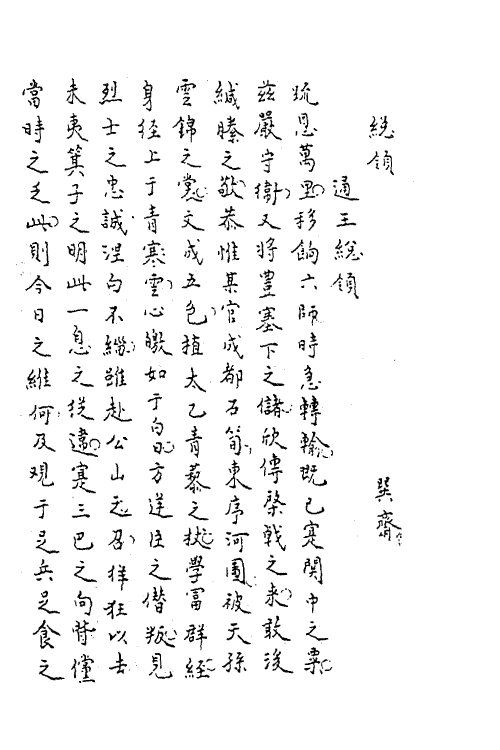 總領
通王總領　巽齋
疏恩萬里移餉六師時急轉輸既已寔關中之粟
茲嚴守衛又將豐塞下之儲欣傳棨戟之來敢後
緘縢之敬恭惟某官成都石筍東序河圖被天孫
雲錦之裳文成五色植太乙青藜之杖學冨群經
身径上于青寒雲心皦如于白日方逆臣之僣叛見
烈士之忠誠涅白不緇雖赴公山之召佯狂以去
未夷箕子之明此一息之從違寔三巴之向背儻
當時之乏此則今日之維何及观于足兵足食之